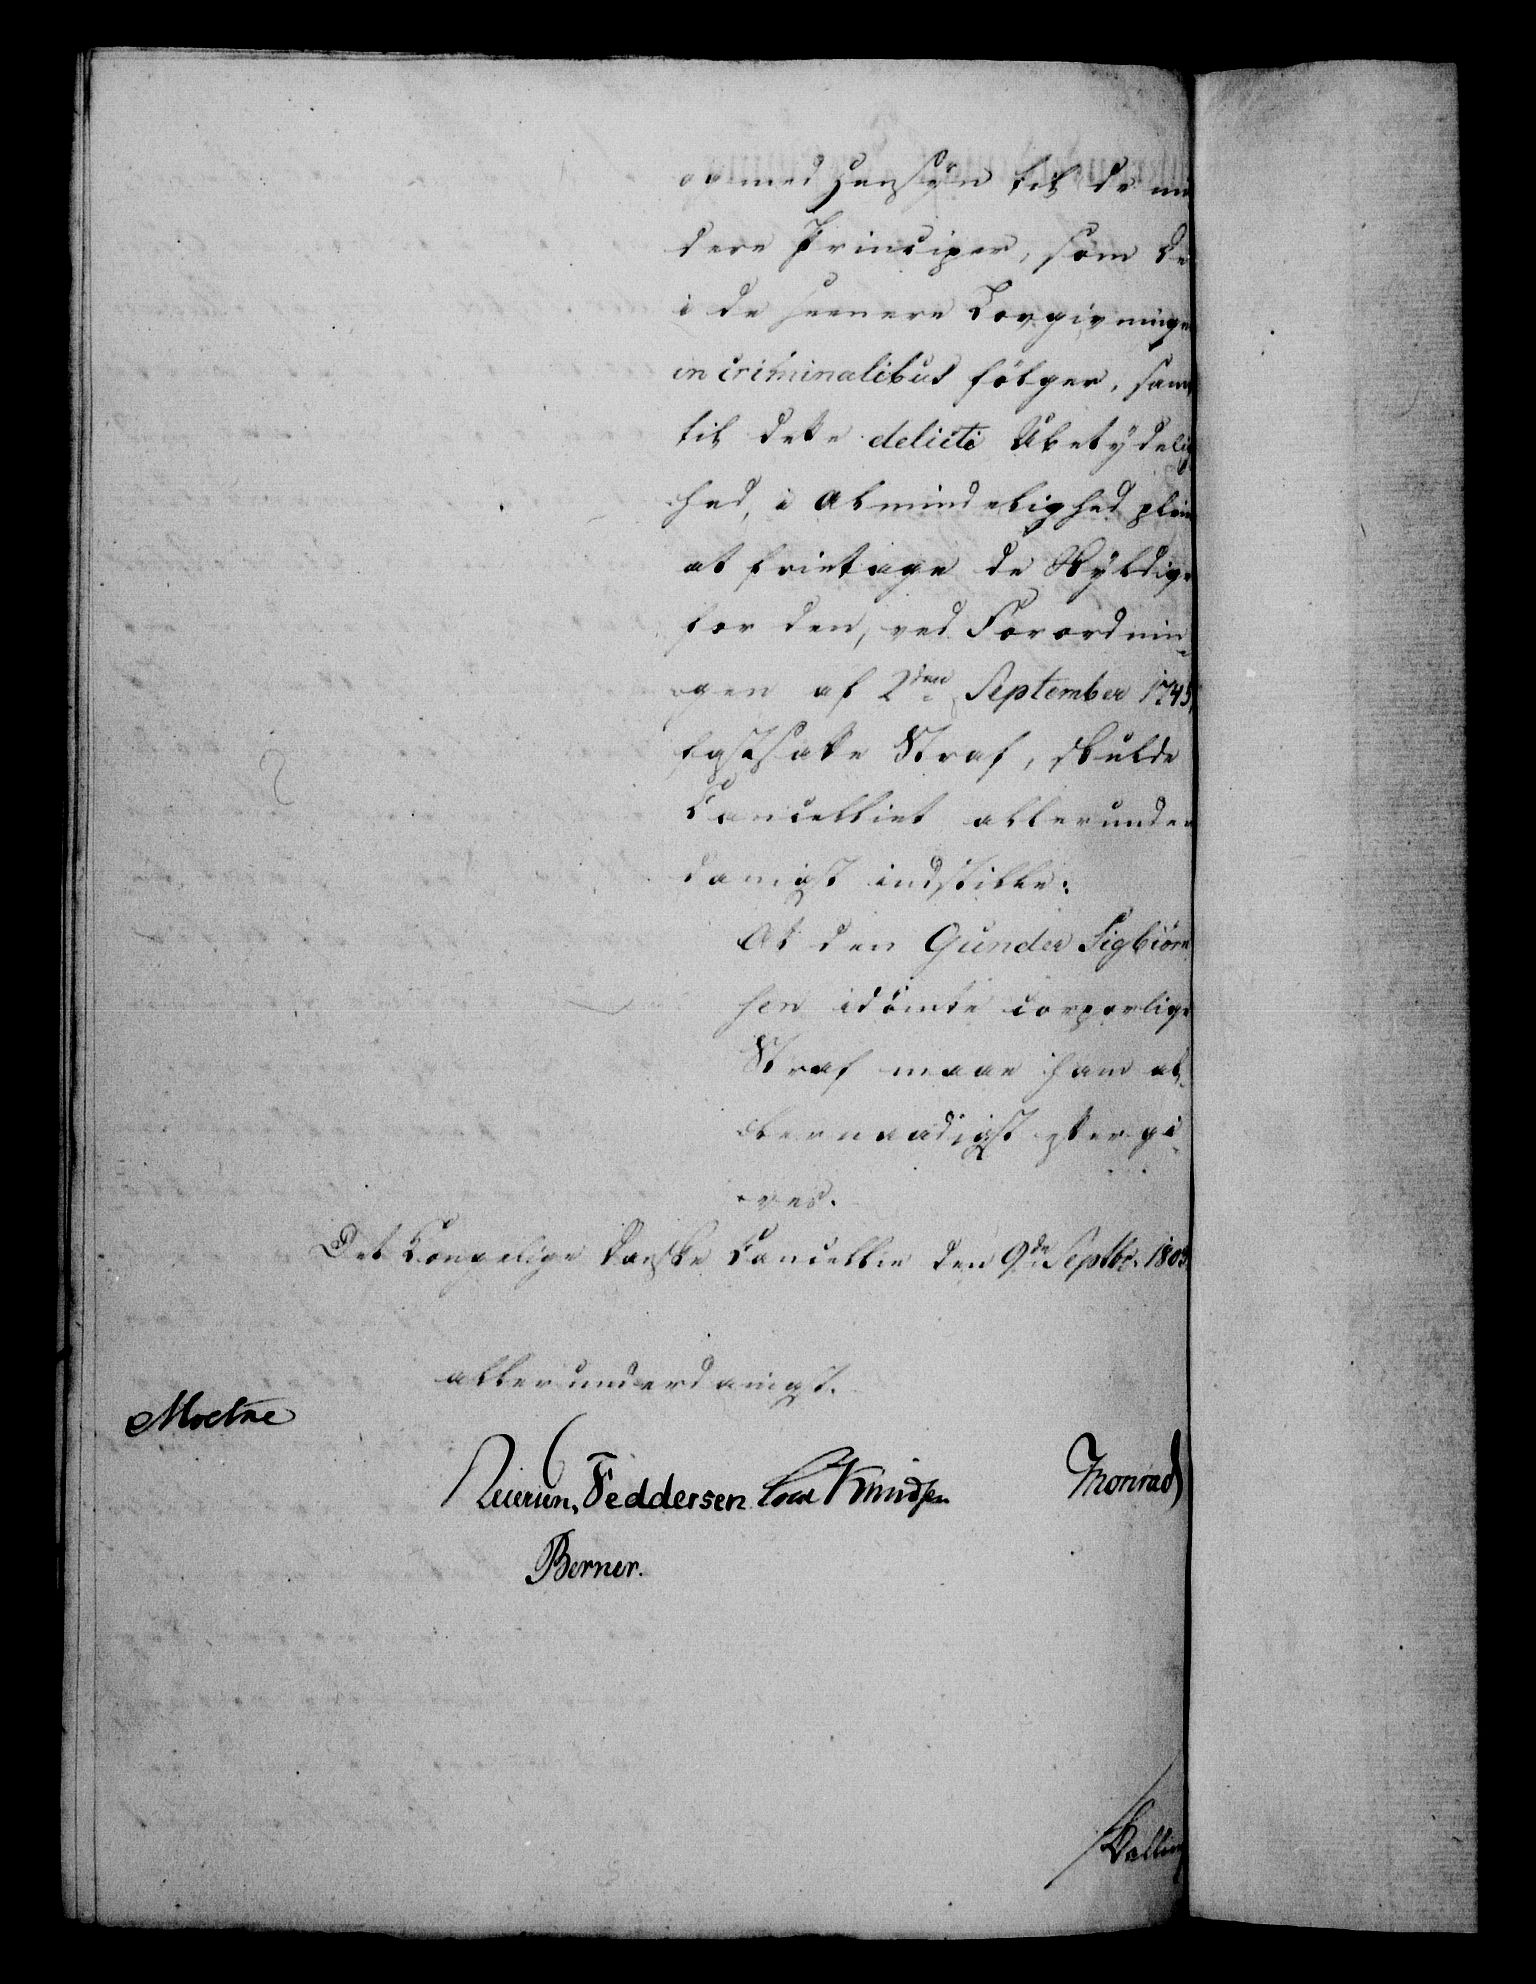 og med Hensyn til de mil
dere Principer, som De
i de seenere Lovgivninge
in criminalibus følger, samt
til dette delicti Ubetydelig
hed, i Almindelighed pleie
at frietage de Skyldige
for den, ved Forordnin-
gen af 2den September 1745,
fastsatte Straf, skulde
Cancelliet allerunder
danigst indstille:
At den Gunder Sigbiørn
sen idømte corporlige
Straf maae ham al-
lernaadigst eftergi-
ves.
Det Kongelige Danske Cancellie den 9de Septbr. 180
allerunderdanigst.
Moltke
Feddersen Knudsen Monrad
Berner.